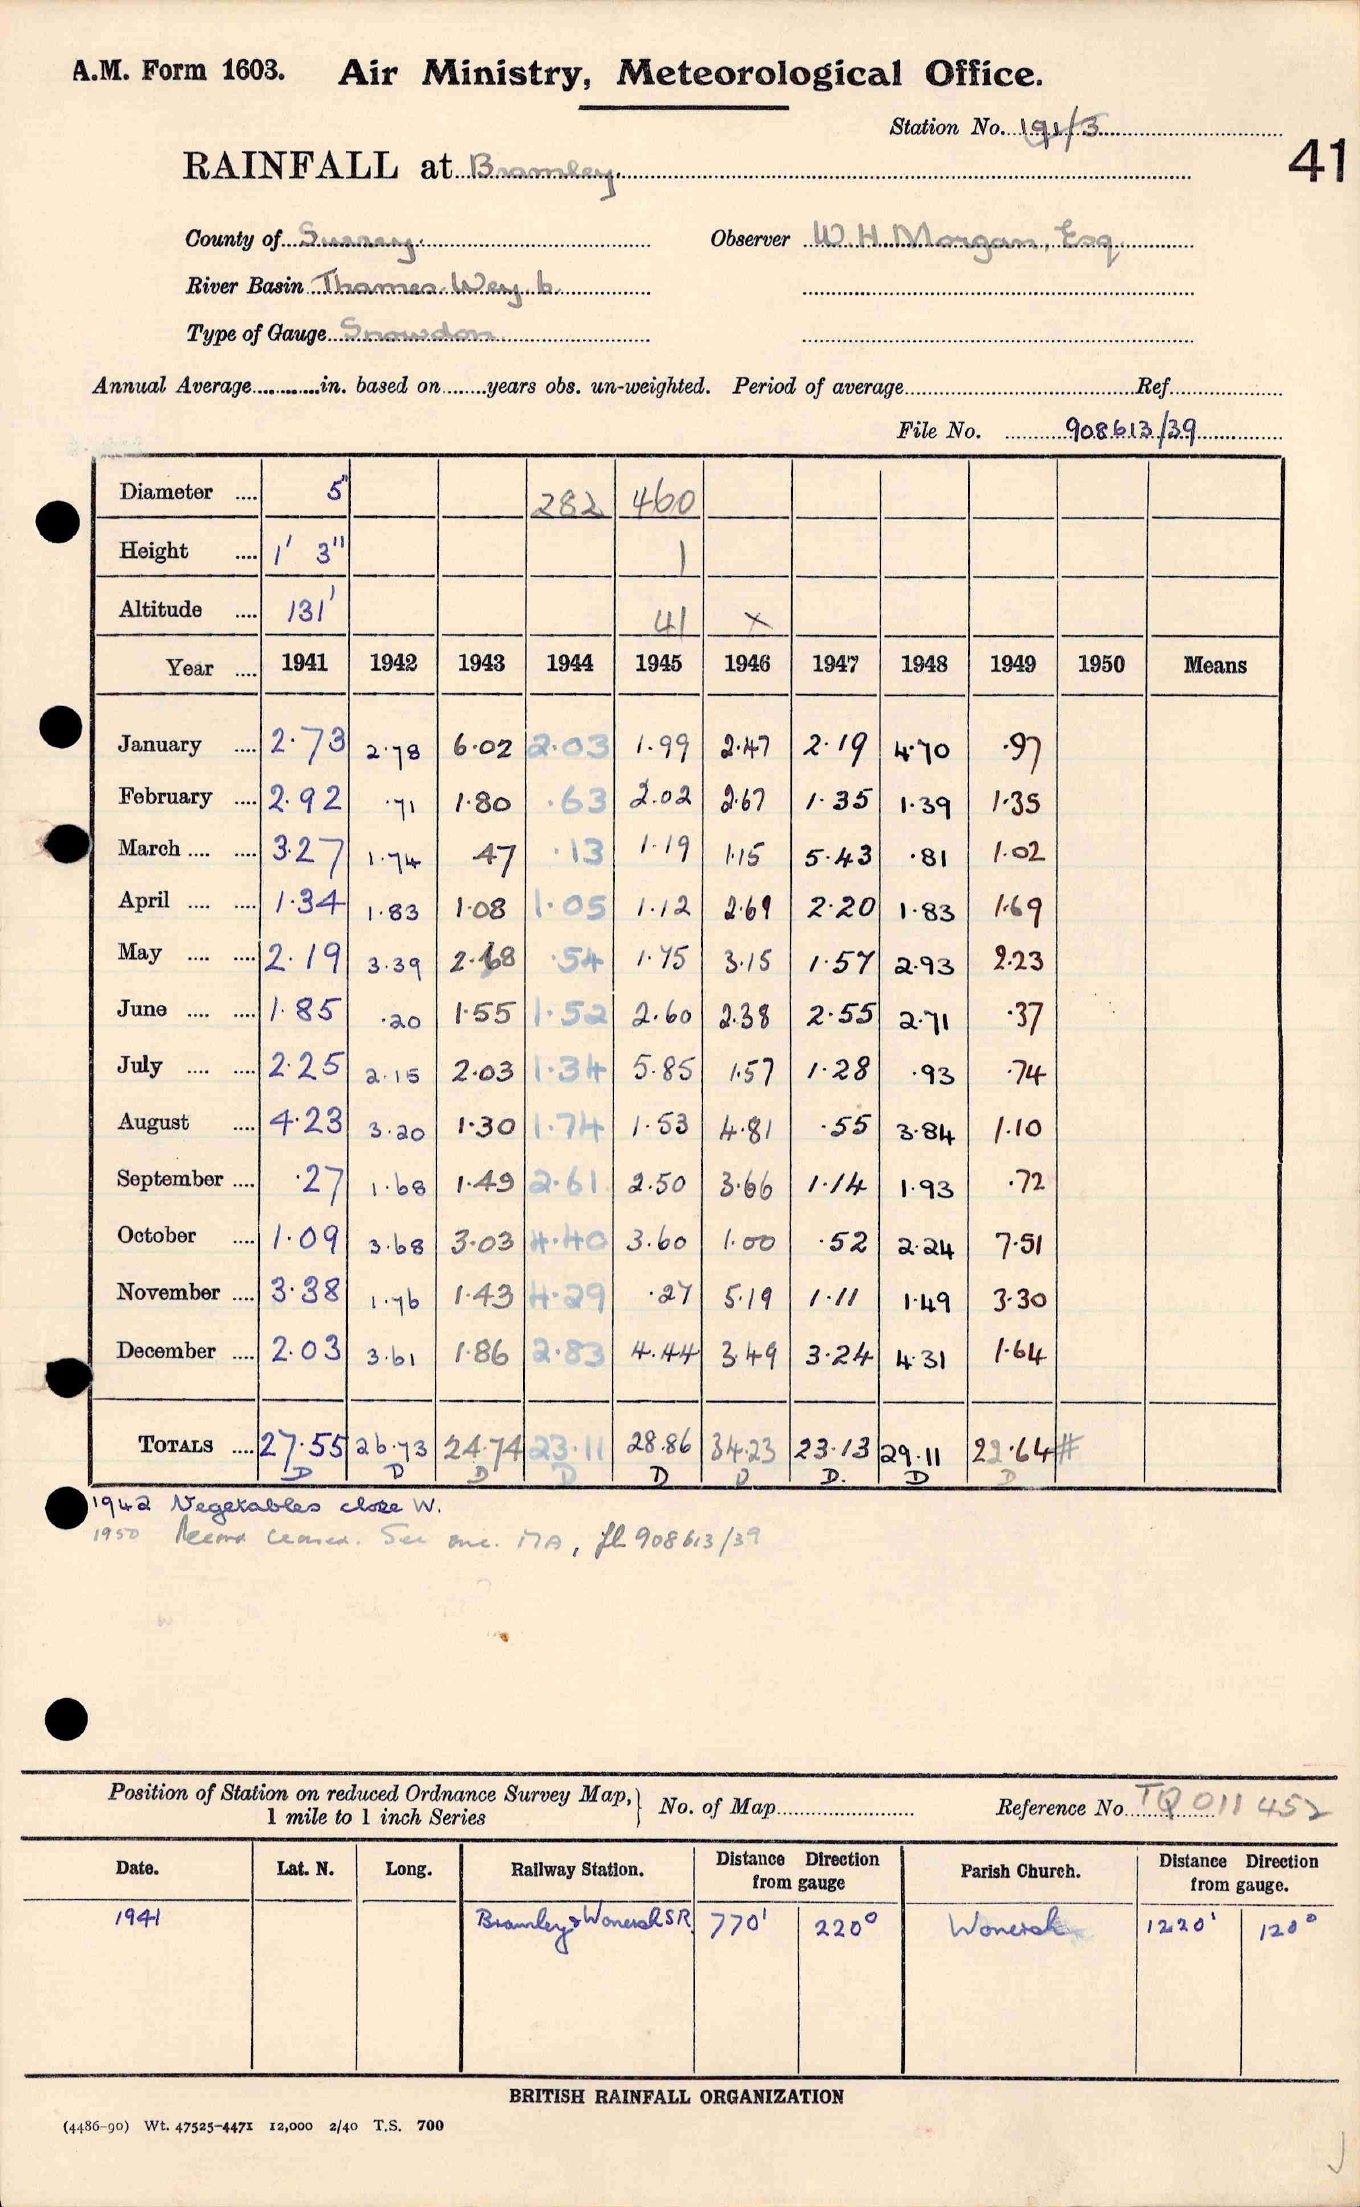 A.M. Form 1603. Air Ministry, Meteorological Office.
Station No. 191/3
41
RAINFALL at Bramley.
County of Surrey. Observer W. H. Morgan, Esq.
River Basin Thames. Wey. b.
Type of Gauge Snowdon
Annual Average............in. based on.......years obs. un-weighted. Period of average.......... Ref..........
File No. 908613/39
Diameter .... 5" 282 460
Height .... 1' 3" 1
Altitude .... 131' 41 x
Year .... 1941 1942 1943 1944 1945 1946 1947 1948 1949 1950 Means
January .... 2.73 2.78 6.02 2.03 1.99 2.47 2.19 4.70 .97
February .... 2.92 .71 1.80 .63 2.02 2.67 1.35 1.39 1.35
March .... .... 3.27 1.74 .47 .13 1.19 1.15 5.43 .81 1.02
April .... .... 1.34 1.83 1.08 1.05 1.12 2.69 2.20 1.83 1.69
May .... .... 2.19 3.39 2.68 .54 1.75 3.15 1.57 2.93 2.23
June .... .... 1.85 .20 1.55 1.52 2.60 2.38 2.55 2.71 .37
July .... .... 2.25 2.15 2.03 1.34 5.85 1.57 1.28 .93 .74
August .... 4.23 3.20 1.30 1.74 1.53 4.81 .55 3.84 1.10
September .... .27 1.68 1.49 2.61 2.50 3.66 1.14 1.93 .72
October .... 1.09 3.68 3.03 4.40 3.60 1.00 .52 2.24 7.51
November .... 3.38 1.76 1.43 4.29 .27 5.19 1.11 1.49 3.30
December .... 2.03 3.61 1.86 2.83 4.44 3.49 3.24 4.31 1.64
TOTALS .... 27.55 26.73 24.74 23.11 28.86 34.23 23.13 29.11 22.64 #
D D D D D D D. D D
1942 Vegetables close W.
1950 Record ceased. See enc. 17A, fl 908613/39
Position of Station on reduced Ordnance Survey Map, } No. of Map.......... Reference No. TQ 011 452
1 mile to 1 inch Series
Date. Lat. N. Long. Railway Station. Distance Direction from gauge Parish Church. Distance Direction from gauge.
1941 Bramley & Wonersh S.R. 770' 220° Wonersh 1220' 120°
BRITISH RAINFALL ORGANIZATION
(4486-90) Wt. 47525-4471 12,000 2/40 T.S. 700